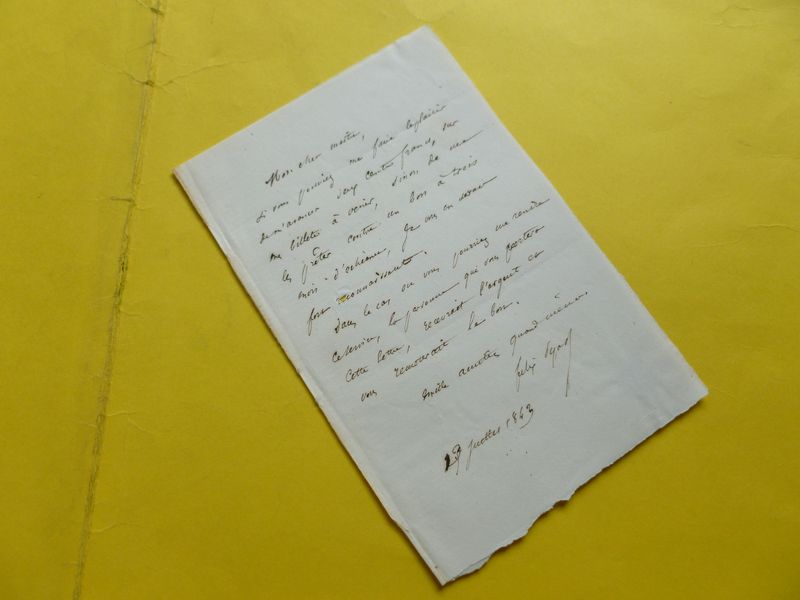 Mon cher maître,
Si vous pouviez me faire le plaisir
de m'avancer deux cents francs, sur
me billets à venir, sinon de me
les prêter contre un bon à trois
mois d'échéance, je vous en serais
fort reconnaissant.
Dans le cas où vous pourriez me rendre
ce service, la personne qui vous portera
cette lettre, recevrait l'argent et
vous remettrait le bon.
amitiés quand même.
Felix Pyat
29 juillet 1843